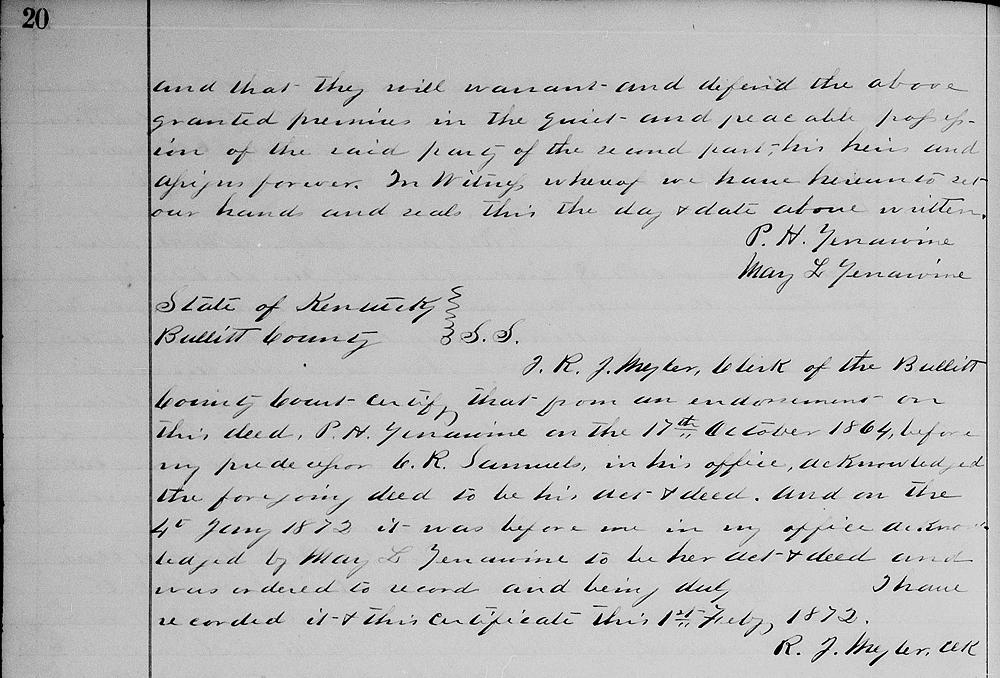 20
and that they will warrant and defend the above
granted premises in the quiet and peacable possess-
ion of the said party of the second part, his heirs and
assigns forever. In Witness whereof we have hereunto set
our hands and seals this the day & date above written.
P. H. Yenawine
May L Yenawine
State of Kentucky }
Bullitt County } S.S.
I. R. J. Meyler, Clerk of the Bullitt
County Court certify that from an endorsement on
this deed, P. H. Yenawine on the 17th October 1864, before
my predecessor C. R. Samuels, in his office, acknowledged
the foregoing deed to be his act & deed. And on the
4t Jany 1872 it was before me in my office acknow-
ledged by May L Yenawine to be her act & deed and
was ordered to record and being duly I have
recorded it & this certificate this 1st Feby, 1872.
R. J. Meyler, Clk